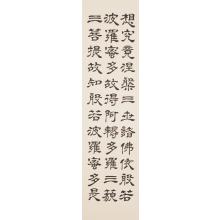 想究竟涅槃三世諸佛依般若
波羅蜜多故得阿耨多羅三藐
三菩提故知般若波羅蜜多是